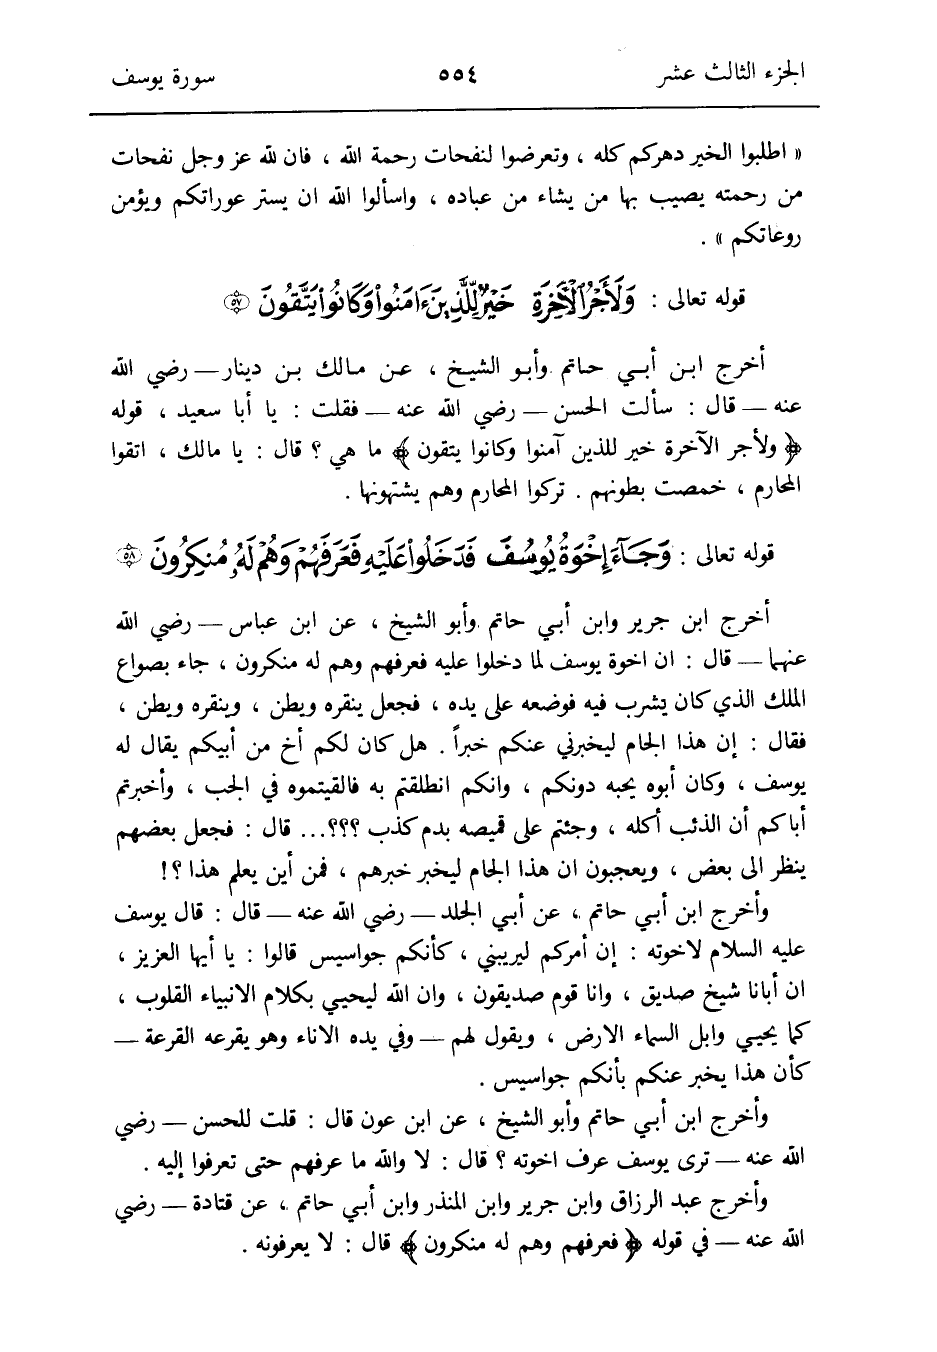 الجزء الثالث عشر ٥٥٤ سورة يوسف
« اطلبوا الخير دهركم كله ، وتعرضوا لنفحات رحمة الله ، فان لله عز وجل نفحات
من رحمته يصيب بها من يشاء من عباده ، واسألوا الله ان يستر عوراتكم ويؤمن
روعاتكم » .
قوله تعالى : وَلَأَجْرُ ٱلْآخِرَةِ خَيْرٌ لِّلَّذِينَ ءَامَنُواْ وَكَانُواْ يَتَّقُونَ ٥٧
أخرج ابن أبي حاتم وأبو الشيخ ، عن مالك بن دينار — رضي الله
عنه — قال : سألت الحسن — رضي الله عنه — فقلت : يا أبا سعيد ، قوله
﴿ ولأجر الآخرة خير للذين آمنوا وكانوا يتقون ﴾ ما هي ؟ قال : يا مالك ، اتقوا
المحارم ، خمصت بطونهم . تركوا المحارم وهم يشتهونها .
قوله تعالى : وَجَآءَ إِخْوَةُ يُوسُفَ فَدَخَلُواْ عَلَيْهِ فَعَرَفَهُمْ وَهُمْ لَهُۥ مُنكِرُونَ ٥٨
أخرج ابن جرير وابن أبي حاتم وأبو الشيخ ، عن ابن عباس — رضي الله
عنهما — قال : ان اخوة يوسف لما دخلوا عليه فعرفهم وهم له منكرون ، جاء بصواع
الملك الذي كان يشرب فيه فوضعه على يده ، فجعل ينقره ويطن ، وينقره ويطن ،
فقال : إن هذا الجام ليخبرني عنكم خبراً . هل كان لكم أخ من أبيكم يقال له
يوسف ، وكان أبوه يحبه دونكم ، وانكم انطلقتم به فالقيتموه في الجب ، وأخبرتم
أباكم أن الذئب أكله ، وجئتم على قميصه بدم كذب ؟؟؟... قال : فجعل بعضهم
ينظر الى بعض ، ويعجبون ان هذا الجام ليخبر خبرهم ، فمن أين يعلم هذا ؟!
وأخرج ابن أبي حاتم ، عن أبي الجلد — رضي الله عنه — قال : قال يوسف
عليه السلام لاخوته : إن أمركم ليريبني ، كأنكم جواسيس قالوا : يا أيها العزيز ،
ان أبانا شيخ صديق ، وانا قوم صديقون ، وان الله ليحيي بكلام الانبياء القلوب ،
كما يحيي وابل السماء الارض ، ويقول لهم — وفي يده الاناء وهو يقرعه القرعة —
كأن هذا يخبر عنكم بأنكم جواسيس .
وأخرج ابن أبي حاتم وأبو الشيخ ، عن ابن عون قال : قلت للحسن — رضي
الله عنه — ترى يوسف عرف اخوته ؟ قال : لا والله ما عرفهم حتى تعرفوا إليه .
وأخرج عبد الرزاق وابن جرير وابن المنذر وابن أبي حاتم ، عن قتادة — رضي
الله عنه — في قوله ﴿ فعرفهم وهم له منكرون ﴾ قال : لا يعرفونه .